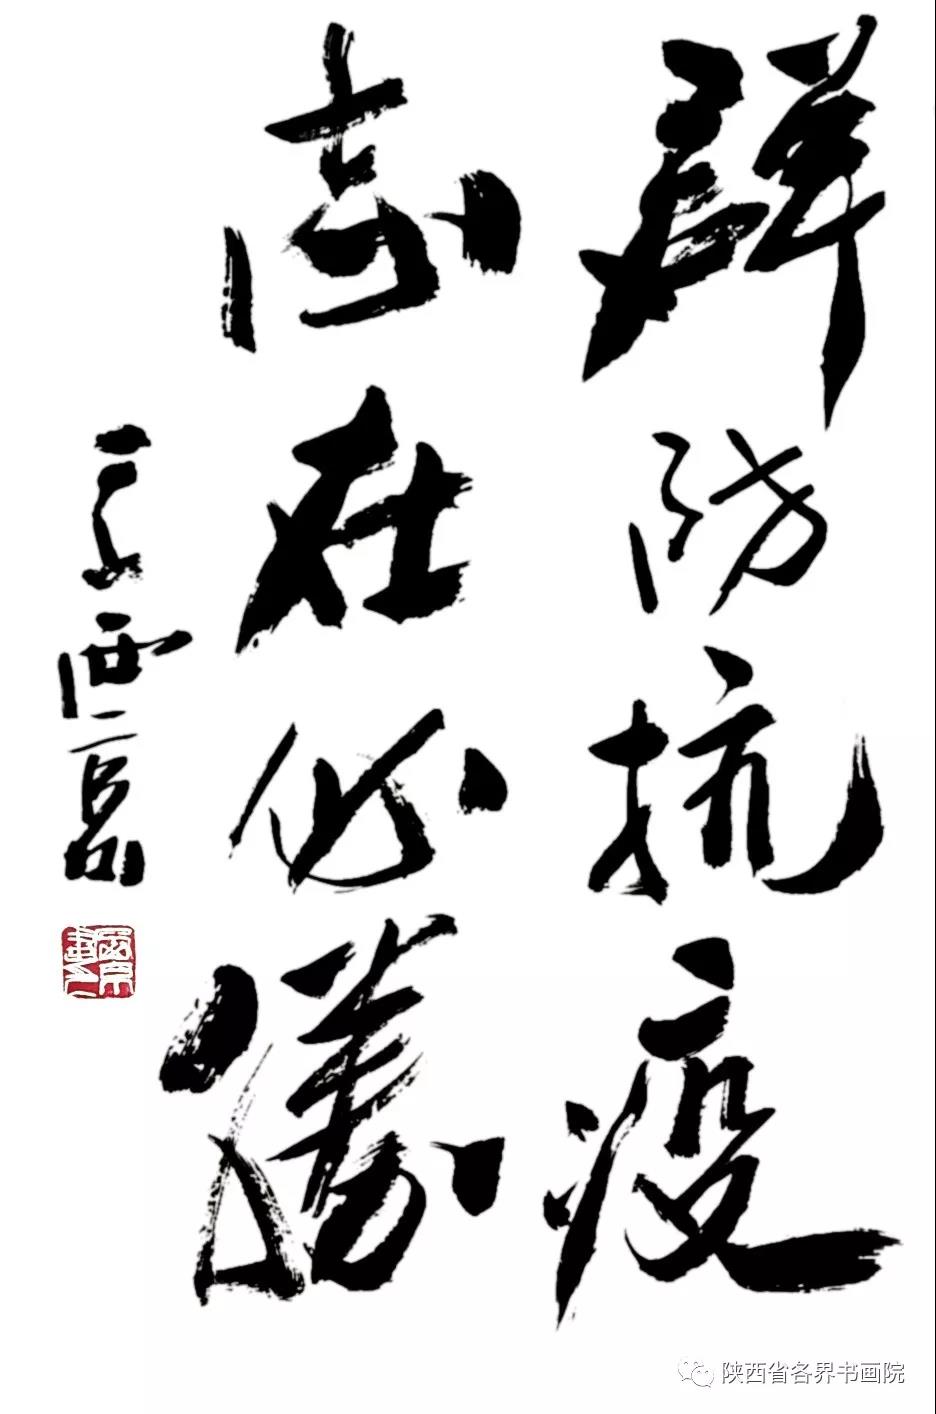 群防抗疫
志在必勝
陕西省各界书画院